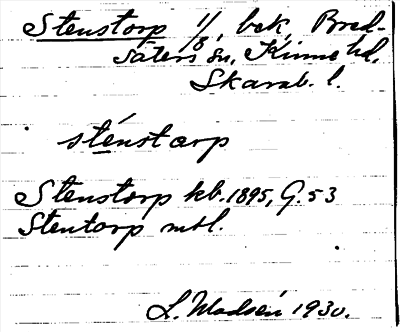 Stenstorp 1/8, bek, Bred-
säters sn, Kinne hd,
Skarab. l.
stenstarp
Stenstorp kb. 1895, G. 53
Stentorp mtl.
L. Modsén 1930.